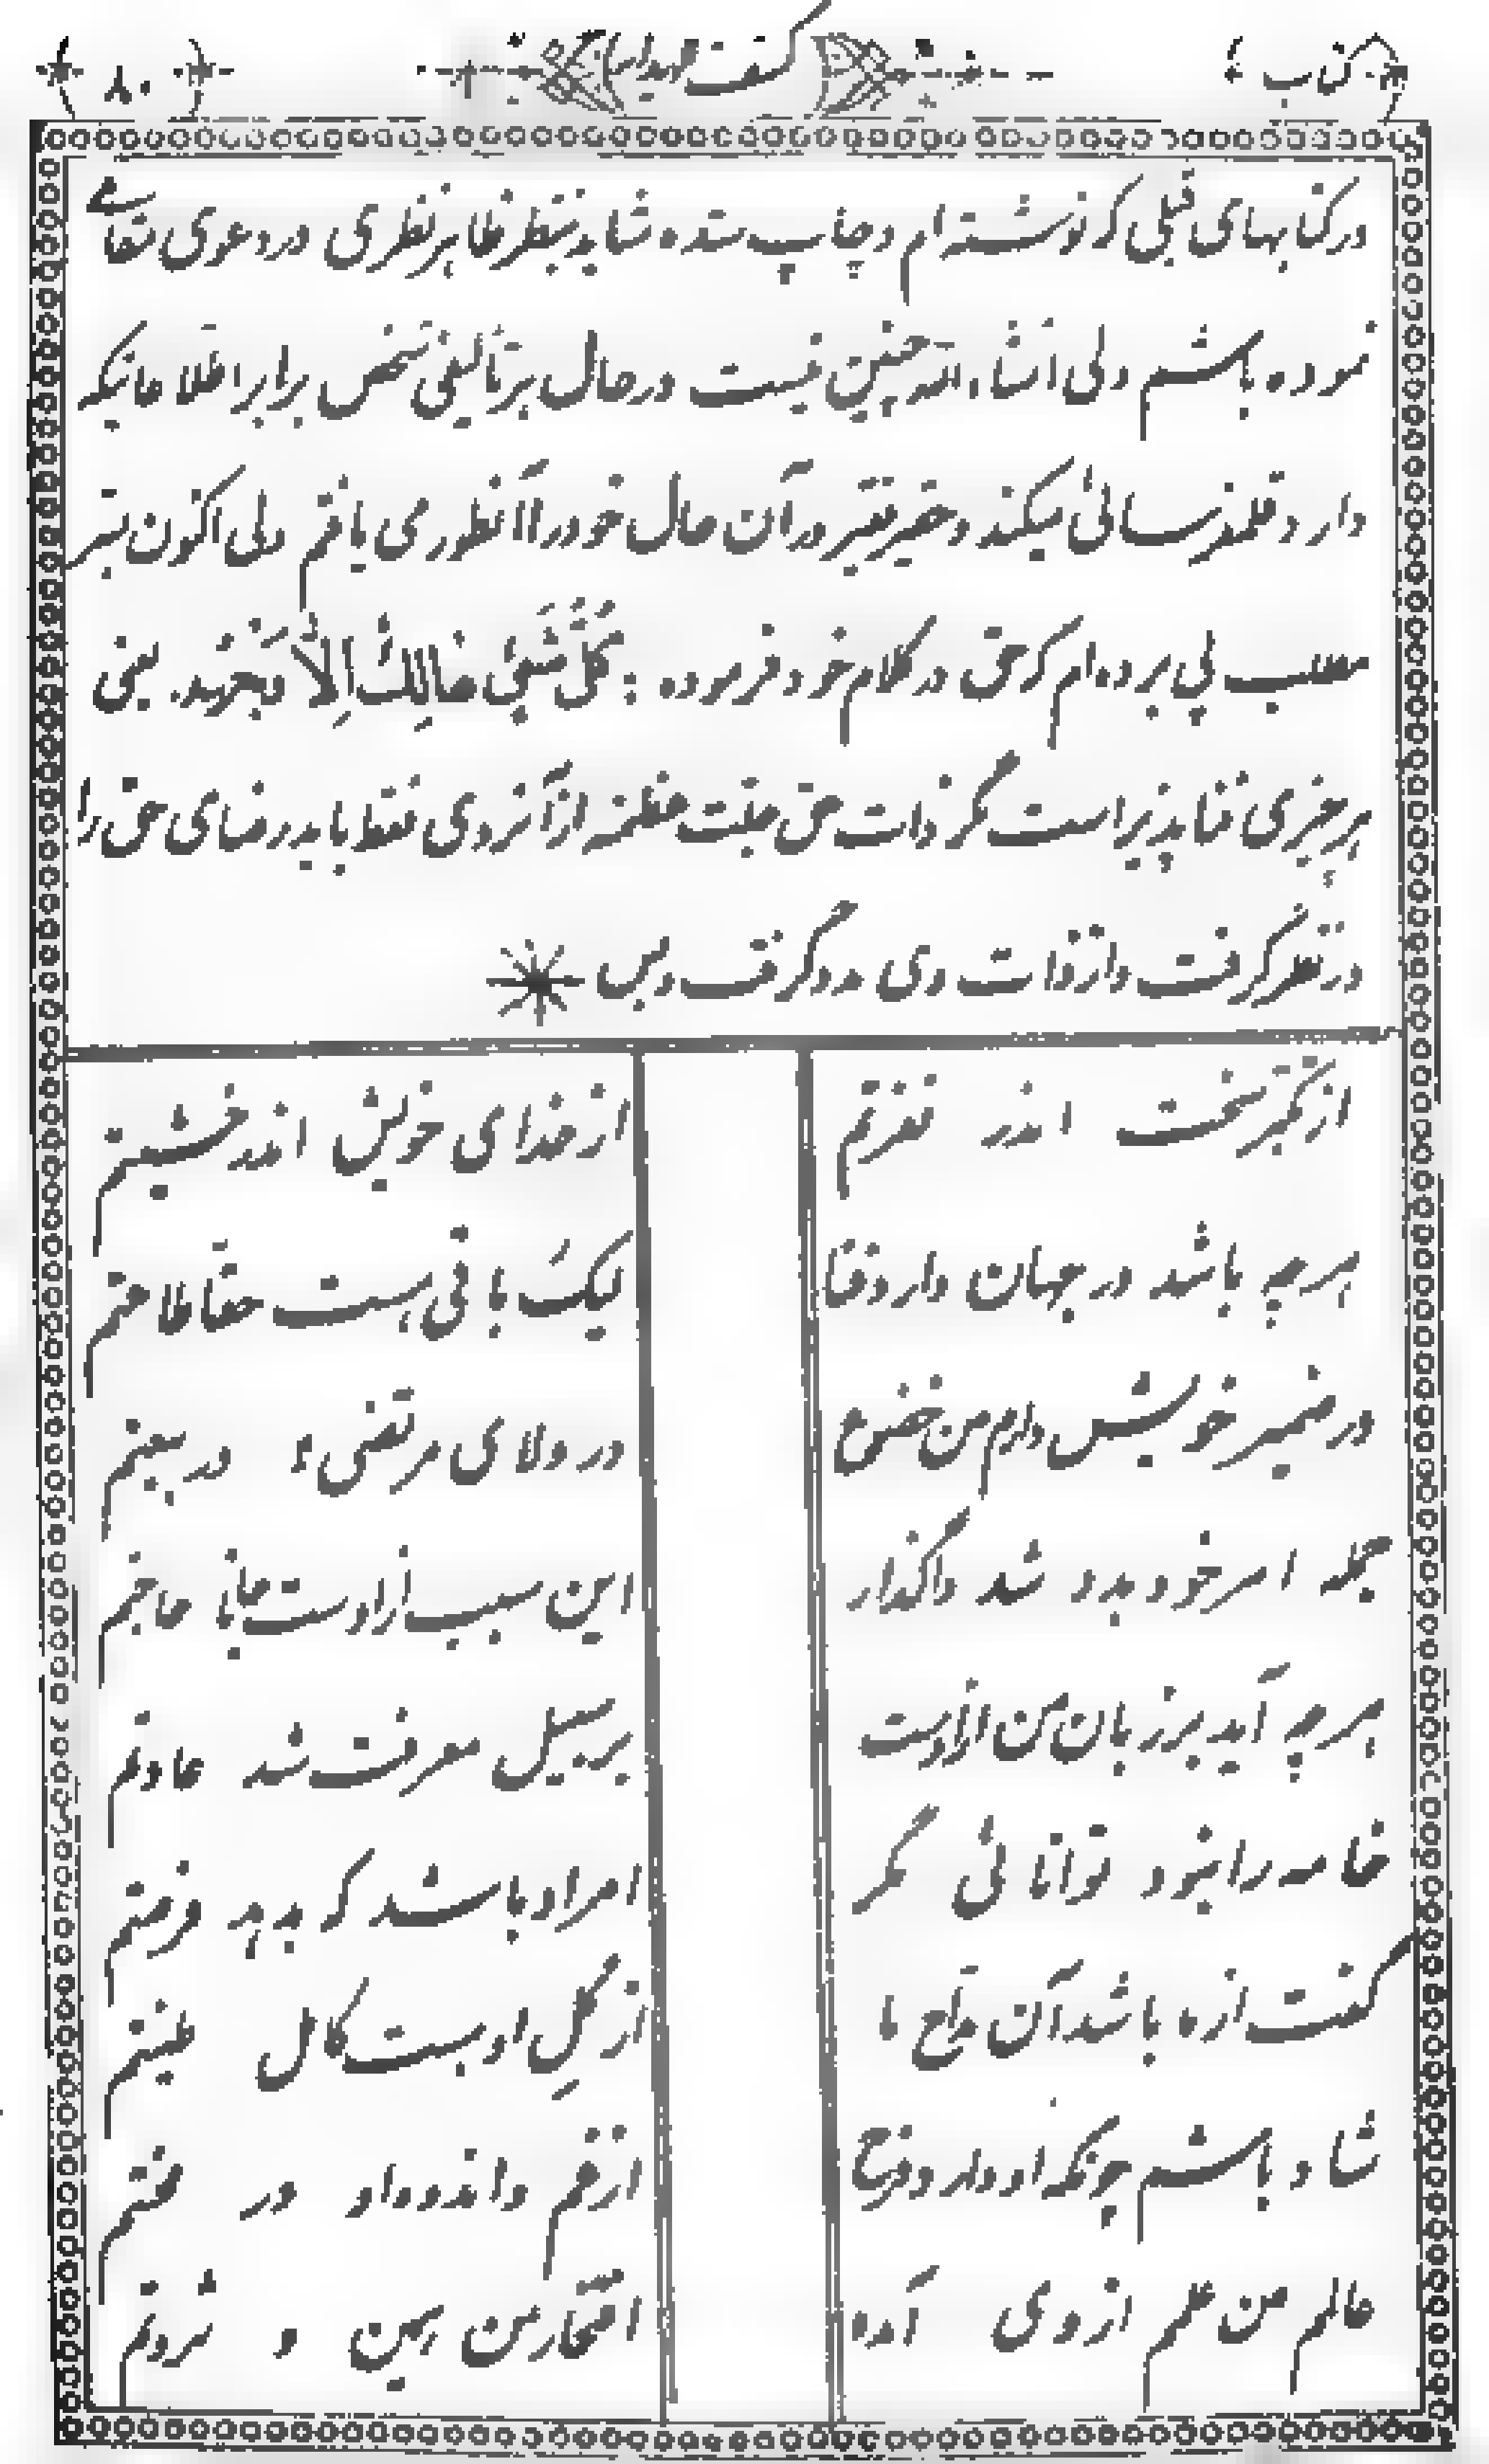 کتاب
۸۰
در کتابهای قبلی که نوشته ام و چاپ شده شاید بنظر ظاهر نظری در دعوی مقامی
نموده باشم ولی انشاءالله چنین نیست در حال هر تألیفی شخص برابر اطلاعاتیکه
دارد قلمفرسائی میکند و حقیر فقیر در آن حال خود را آنطور می یافتم ولی اکنون بهتر
مطلب پی برده ام که حق در کلام خود فرموده : کُلُّ شَیْئٍ هالِکٌ اِلاّٰ وَجْهَهُ. یعنی
هر چیزی فناپذیر است مگر ذات حق جلّت عظمته از آنروی فقط باید رضای حق را
در نظر گرفت و از ذات وی مدد گرفت و بس
از تکبّر سخت اندر نفرتم
از خدای خویش اندر خشیتم
هر چه باشد در جهان دارد فنا
لیکَ باقی هست حقّا طاعتم
در ضمیر خویش دارم من خضوع
در ولای مرتضیٰ در بیعتم
جمله امر خود بدو شد واگذار
این سبب از اوست حاجتم
هر چه آید بر زبان من از اوست
بر سبیل معرفت شد عادتم
خامه را نبود توانائی مگر
امر او باشد که بدهد فرصتم
گفت از ما باشد آن مدّاح ما
از گِلِ او هست کامل طینتم
شاد باشم چونکه او دارد فرح
از غم و اندوه او در محنتم
عالم من علم از وی آمده
افتخار من همین و ثروتم